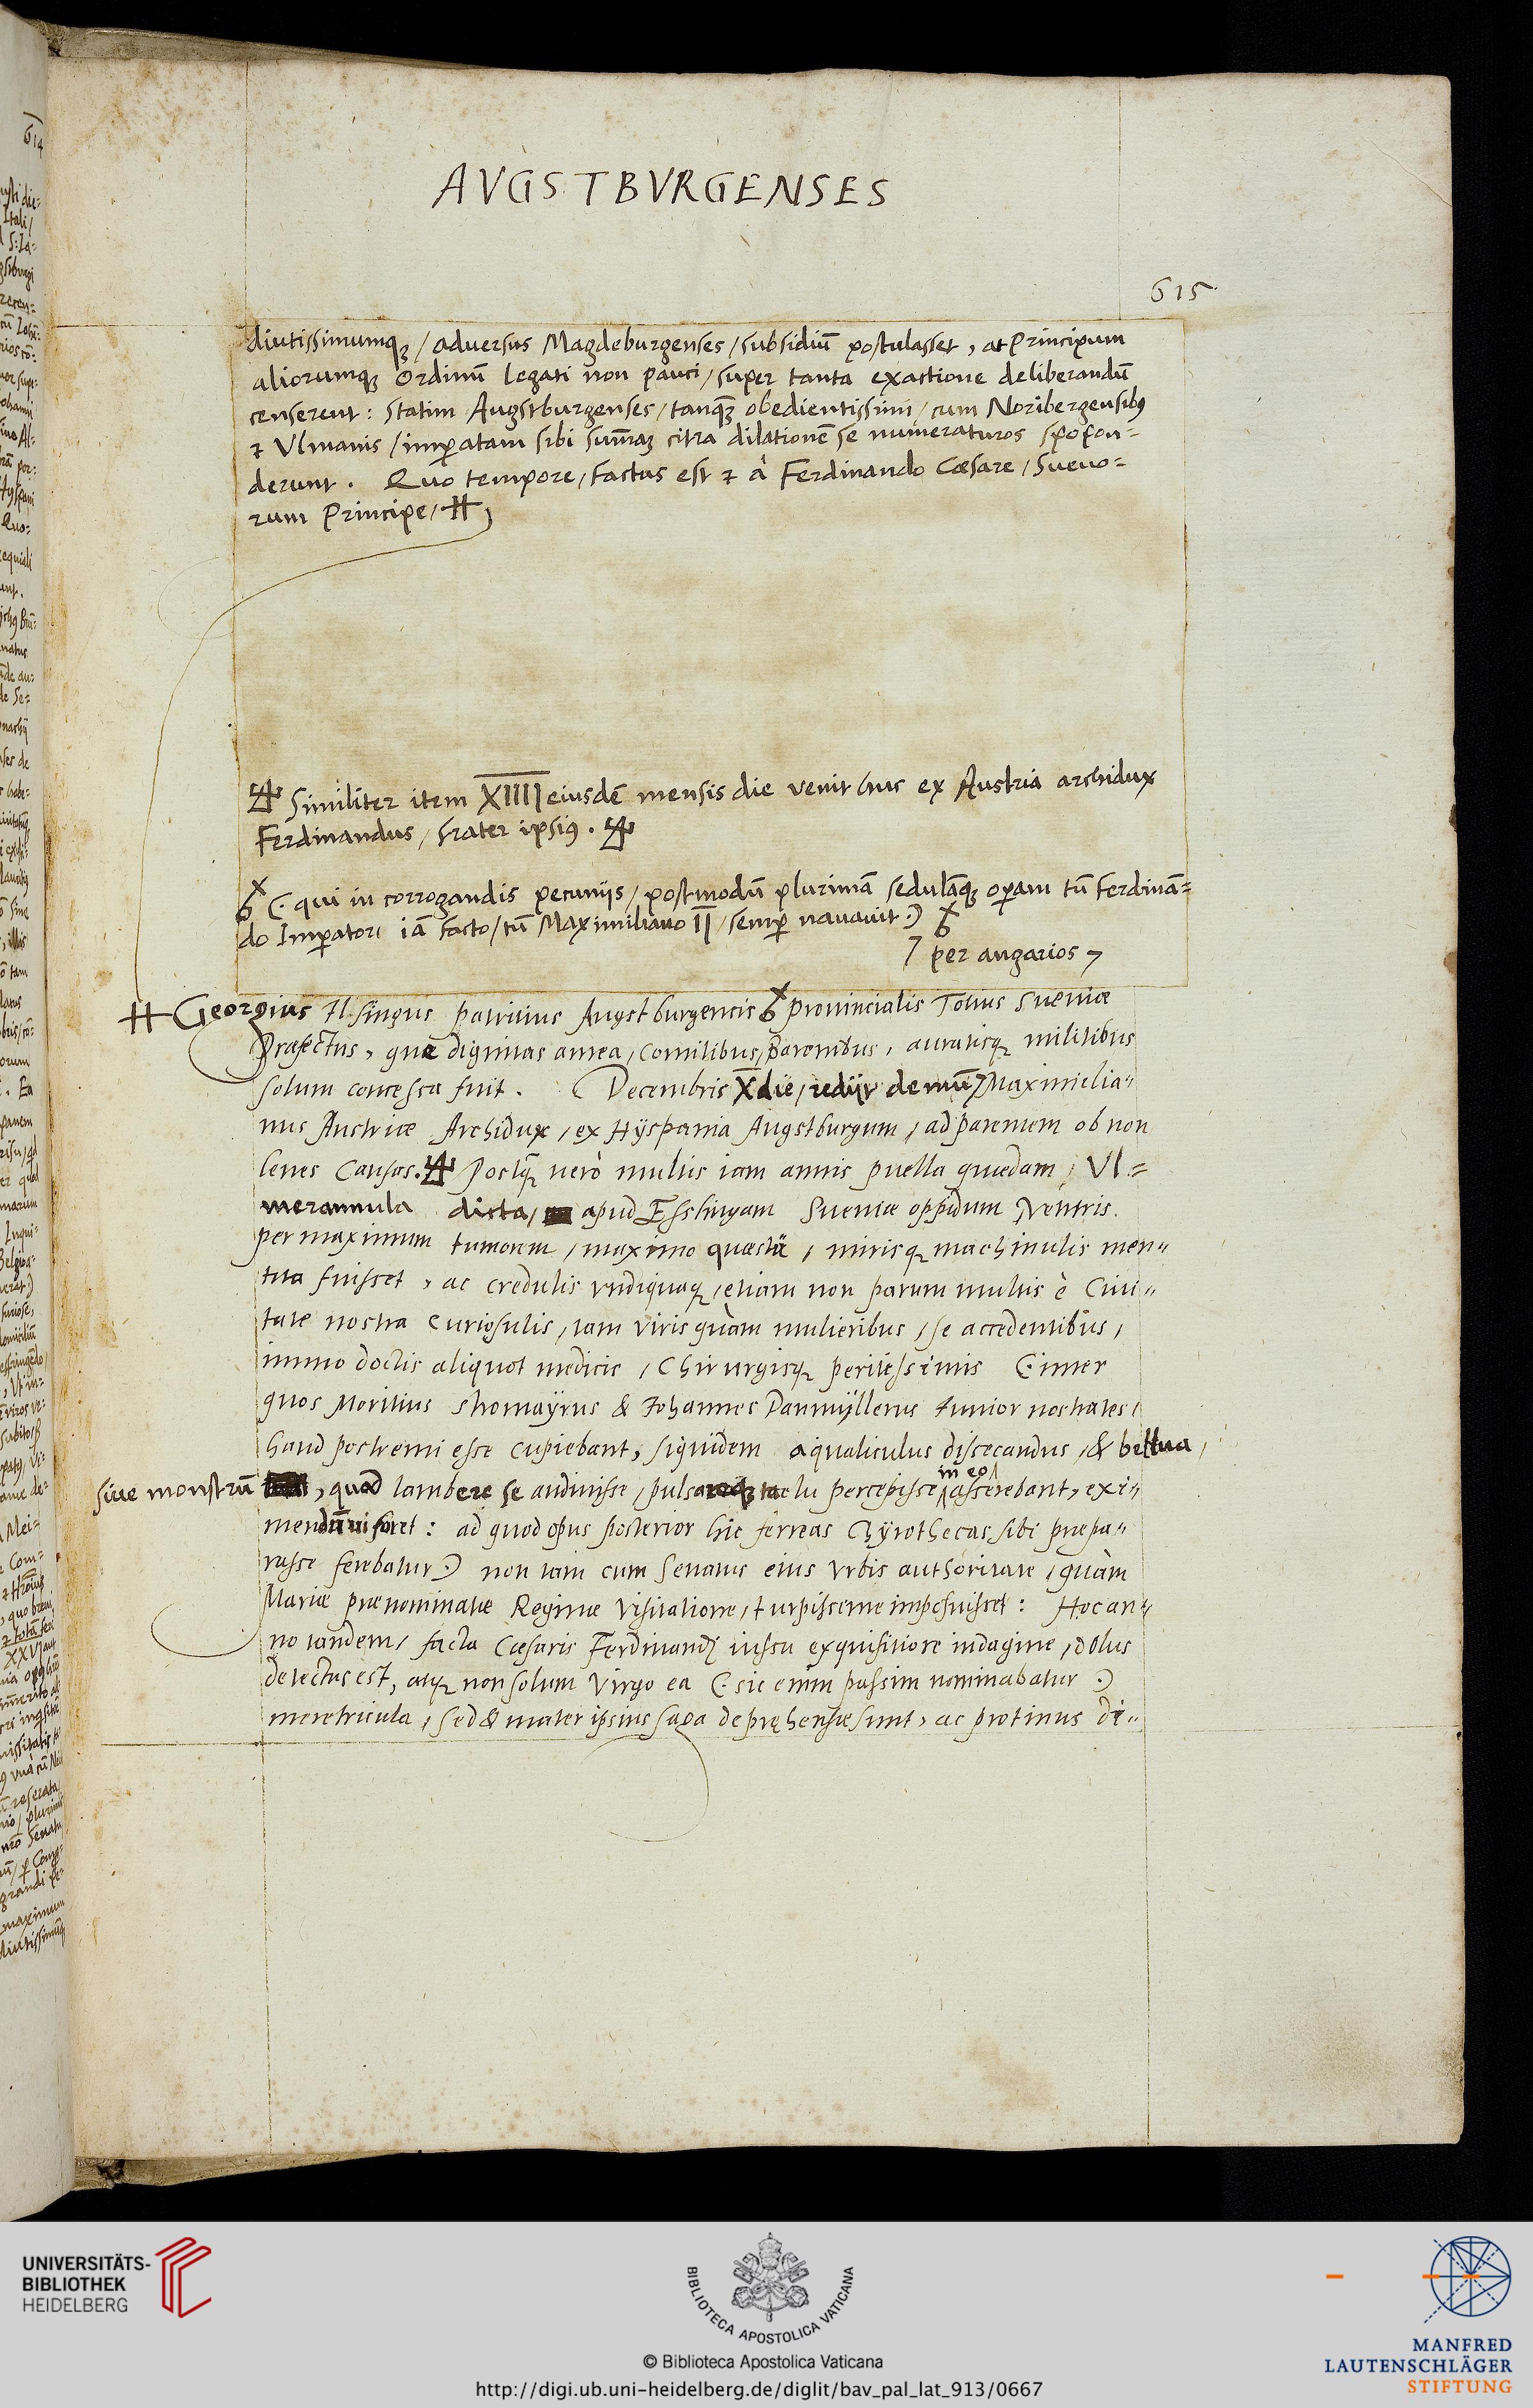 AVGSTBVRGENSES
615
diutissimumqꝫ / adversus Magdeburgenses / subsidiũ postulasset, at Principum
aliorumqꝫ Ordinũ legati non pauci / super tanta exactione deliberandũ
censerent: statim Augstburgenses / tanqꝫ obedientissimi / cum Noribergensibꝰ
⁊ Vlmanis / imperatam sibi sum̃aꝫ citra dilationẽ se numeraturos spopon=
derunt. Quo tempore / factus est ⁊ à Ferdinando Cæsare / Suevo=
rum Principe /
Similiter item XIIII eiusdẽ mensis die venit huc ex Austria archidux
Ferdinandus / frater ipsiꝰ.
(. qui in corrogandis pecunijs / postmodũ plurimã sedulãqꝫ operam tũ Ferdinã=
do Imperatori iã facto / tũ Maximiliano II / semper navavit .)
per angarios
Georgius Ilsingus patritius Augstburgensis Provincialis Totius Sueviæ
Præfectus, quæ dignitas antea, Comitibus, Baronibus, auratisqꝫ militibus
solum concessa fuit. Decembris X die / redijt demũ Maximilia=
nus Austriæ Archidux / ex Hyspania Augstburgum / ad parentem ob non
leves causas. Postqꝫ verò multis iam annis puella quædam / Vl=
merannula dicta, apud Esslingam Sueviæ oppidum / ventris
per maximum tumorem / maximo quæstu / mirisqꝫ machinulis men=
tita fuisset, ac credulis vndiquaqꝫ / etiam non parum multis è Ciui=
tate nostra Curiosulis / tam viris quàm mulieribus / se accedentibus /
immo doctis aliquot medicis / Chirurgisqꝫ peritissimis (. inter
quos Moritius Shomayrus & Iohannes Danmÿllerus Iunior nostrates /
haud postremi esse cupiebant, siquidem aqualiculus dissecandus / & bellua /
siue monstrũ, quod lambere se audiuisse / pulsareqꝫ tactu percepisse in eo asserebant, exi=
mendũ ni foret: ad quod opus posterior hic ferreas Chÿrothecas sibi præpa=
rasse ferebatur .) non tam cum Senatus eius vrbis authoritate / quàm
Mariæ prænominatæ Reginæ visitatione / turpissime imposuisset: Hoc an=
no tandem / facta Cæsaris Ferdinandi iussu exquisitiore indagine / dolus
detectus est, atqꝫ non solum Virgo ea (. sic enim passim nominabatur .)
meretricula / sed & mater ipsius saga deprehensæ sunt, ac protinus di=
UNIVERSITÄTS-
BIBLIOTHEK
HEIDELBERG
BIBLIOTECA APOSTOLICA VATICANA
© Biblioteca Apostolica Vaticana
http://digi.ub.uni-heidelberg.de/diglit/bav_pal_lat_913/0667
MANFRED
LAUTENSCHLÄGER
STIFTUNG